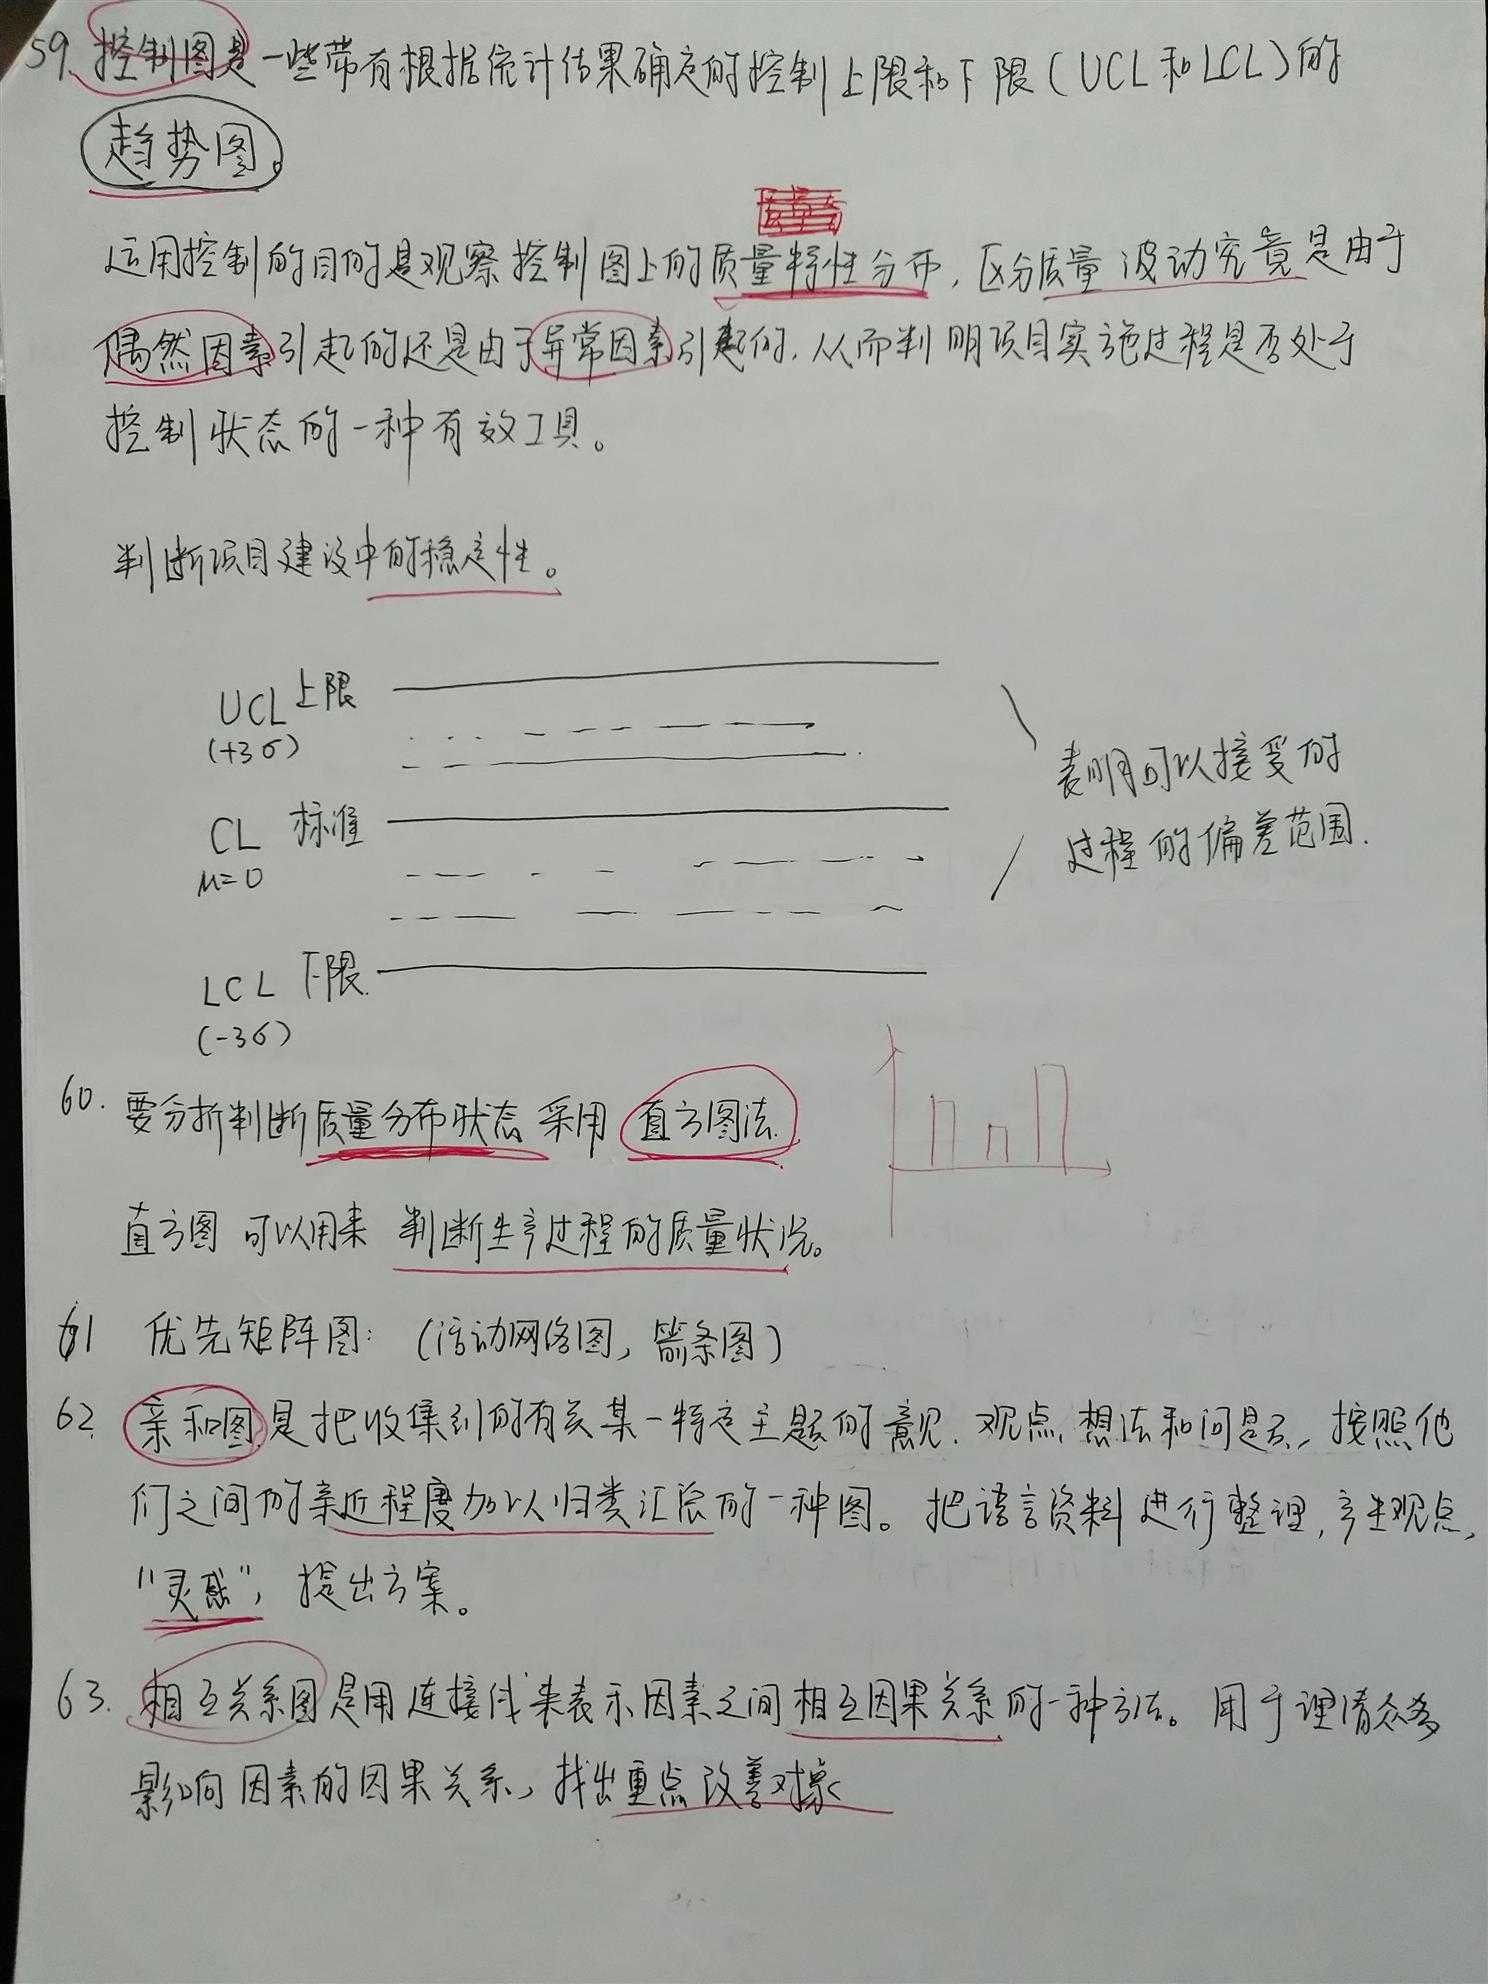 59. 控制图是一些带有根据统计结果确定的控制上限和下限(UCL和LCL)的
趋势图。
运用控制的目的是观察控制图上的质量特性分布,区分质量波动究竟是由于
偶然因素引起的还是由于异常因素引起的,从而判明项目实施过程是否处于
控制状态的一种有效工具。
判断项目建设中的稳定性。
UCL 上限
(+3σ)
CL 标准
μ=0
LCL 下限.
(-3σ)
表明可以接受的
过程的偏差范围.
60. 要分析判断质量分布状态采用 直方图法.
直方图 可以用来 判断生产过程的质量状况。
61 优先矩阵图:(活动网络图,箭条图)
62. 亲和图是把收集到的有关某一特定主题的意见、观点、想法和问题,按照他
们之间的亲近程度加以归类汇总的一种图。把语言资料进行整理,产生观点,
"灵感",提出方案。
63. 相互关系图是用连接线来表示因素之间相互因果关系的一种方法。用于理清众多
影响因素的因果关系,找出重点改善对象